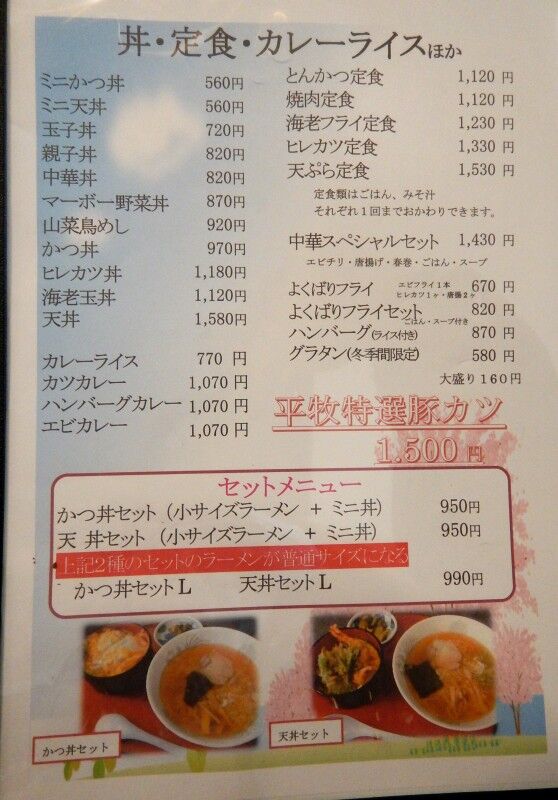 丼・定食・カレーライスほか
ミニかつ丼 560円
ミニ天丼 560円
玉子丼 720円
親子丼 820円
中華丼 820円
マーボー野菜丼 870円
山菜鳥めし 920円
かつ丼 970円
ヒレカツ丼 1,180円
海老玉丼 1,120円
天丼 1,580円
カレーライス 770 円
カツカレー 1,070 円
ハンバーグカレー 1,070 円
エビカレー 1,070 円
とんかつ定食 1,120 円
焼肉定食 1,120 円
海老フライ定食 1,230 円
ヒレカツ定食 1,330 円
天ぷら定食 1,530 円
定食類はごはん、みそ汁
それぞれ1回までおかわりできます。
中華スペシャルセット 1,430 円
エビチリ・唐揚げ・春巻・ごはん・スープ
よくばりフライ エビフライ1本 ヒレカツ1ヶ・唐揚2ヶ 670 円
よくばりフライセット ごはん・スープ付き 820 円
ハンバーグ(ライス付き) 870 円
グラタン(冬季間限定) 580 円
大盛り160円
平牧特選豚カツ
1,500 円
セットメニュー
かつ丼セット (小サイズラーメン + ミニ丼) 950円
天 丼セット (小サイズラーメン + ミニ丼) 950円
上記2種のセットのラーメンが普通サイズになる
かつ丼セットL 天丼セットL 990円
かつ丼セット
天丼セット